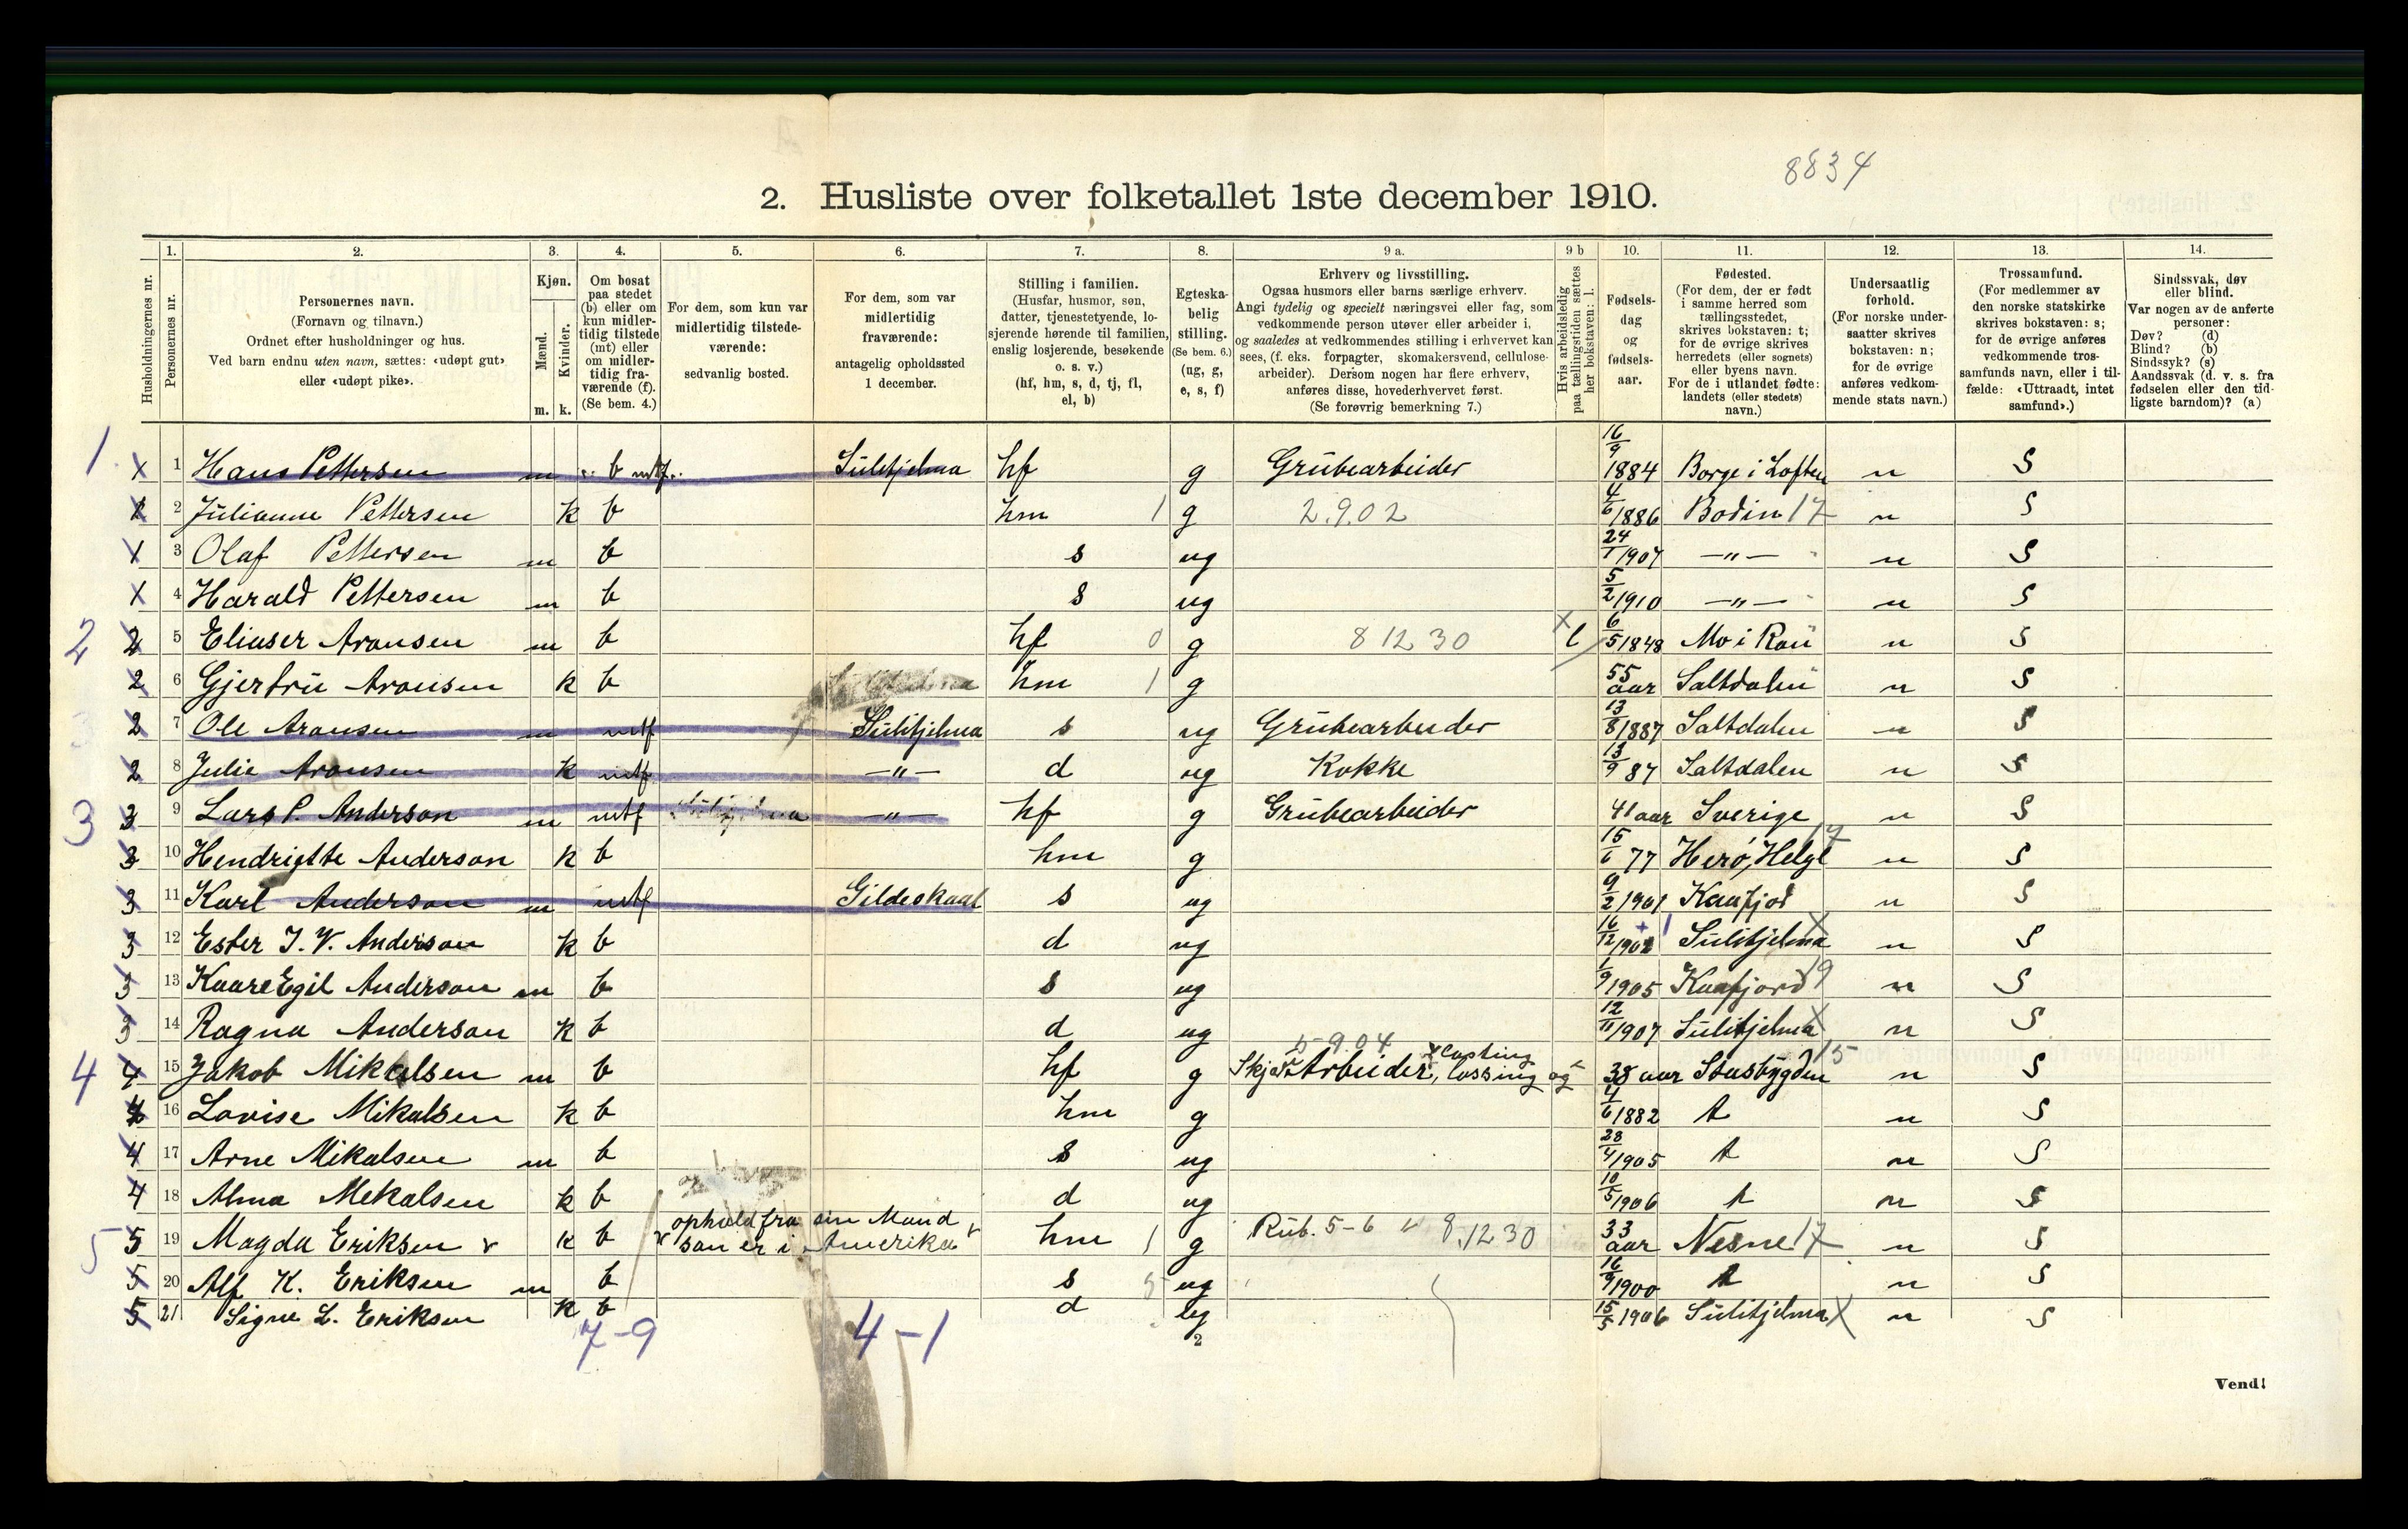 8834
2. Husliste over folketallet 1ste december 1910.
Husholdningernes nr.
1.
Personernes nr.
2.
Personernes navn.
(Fornavn og tilnavn.)
Ordnet efter husholdninger og hus.
Ved barn endnu uten navn, sættes: «udøpt gut»
eller «udøpt pike».
3.
Kjøn.
Mænd.
Kvinder.
m. k.
4.
Om bosat
paa stedet
(b) eller om
kun midler-
tidig tilstede
(mt) eller
om midler-
tidig fra-
værende (f).
(Se bem. 4.)
5.
For dem, som kun var
midlertidig tilstede-
værende:
sedvanlig bosted.
6.
For dem, som var
midlertidig
fraværende:
antagelig opholdssted
1 december.
7.
Stilling i familien.
(Husfar, husmor, søn,
datter, tjenestetyende, lo-
sjerende hørende til familien,
enslig losjerende, besøkende
o. s. v.)
(hf, hm, s, d, tj, fl,
el, b)
8.
Egteska-
belig
stilling.
(Se bem. 6.)
(ug, g,
e, s, f)
9 a.
Erhverv og livsstilling.
Ogsaa husmors eller barns særlige erhverv.
Angi tydelig og specielt næringsvei eller fag, som
vedkommende person utøver eller arbeider i,
og saaledes at vedkommendes stilling i erhvervet kan
sees, (f. eks. forpagter, skomakersvend, cellulose-
arbeider). Dersom nogen har flere erhverv,
anføres disse, hovederhvervet først.
(Se forøvrig bemerkning 7.)
9 b
Hvis arbeidsledig
paa tællingstiden sættes
her bokstaven: l.
10.
Fødsels-
dag
og
fødsels-
aar.
11.
Fødested.
(For dem, der er født
i samme herred som
tællingsstedet,
skrives bokstaven: t;
for de øvrige skrives
herredets (eller sognets)
eller byens navn.
For de i utlandet fødte:
landets (eller stedets)
navn.)
12.
Undersaatlig
forhold.
(For norske under-
saatter skrives
bokstaven: n;
for de øvrige
anføres vedkom-
mende stats navn.)
13.
Trossamfund.
(For medlemmer av
den norske statskirke
skrives bokstaven: s;
for de øvrige anføres
vedkommende tros-
samfunds navn, eller i til-
fælde: «Uttraadt, intet
samfund».)
14.
Sindssvak, døv
eller blind.
Var nogen av de anførte
personer:
Døv? (d)
Blind? (b)
Sindssyk? (s)
Aandssvak (d. v. s. fra
fødselen eller den tid-
ligste barndom)? (a)
1. 1 Hans Pettersen m b mtf. Sulitjelma hf g Grubearbeider 16/9 1884 Borge i Loften n S
1 2 Julianne Pettersen k b hm 1 g 2.9.02 4/6 1886 Bodin 17 n S
1 3 Olaf Pettersen m b s ug 24/1 1907 —"— n S
1 4 Harald Pettersen m b s ug 5/2 1910 —"— n S
2 2 5 Eliaser Aronsen m b hf 0 g 8 12 30 l 6/5 1848 Mo i Ran n S
2 6 Gjertru Aronsen k b hm 1 g 55 aar Saltdalen n S
2 7 Ole Aronsen m mtf Sulitjelma s ug Grubearbeider 13/8 1887 Saltdalen n S
2 8 Julie Aronsen k mtf —"— d ug Kokke 13/9 87 Saltdalen n S
3 3 9 Lars P. Anderson m mtf —"— hf g Grubearbeider 41 aar Sverige n S
3 10 Hendriette Anderson k b hm g 15/6 77 Herø, Helgl 17 n S
3 11 Karl Anderson m mtf Gildeskaal s ug 9/2 1901 Kaafjod n S
3 12 Ester J. V. Anderson k b d ug 16/12 1902 Sulitjelma n S
3 13 Kaare Egil Anderson m b s ug 1/9 1905 Kaafjord 19 n S
3 14 Ragna Anderson k b d ug 12/11 1907 Sulitjelma n S
5-9.04
4 4 15 Jakob Mikalsen m b hf g Arbeider, lossing og lasting 38 aar Stasbygden 15 n S
4 16 Lovise Mikalsen k b hm g 4/6 1882 t n S
4 17 Arne Mikalsen m b s ug 28/4 1905 t n S
4 18 Alma Mekalsen k b d ug 10/5 1906 t n S
5 5 19 Magda Eriksen k b ophold fra sin Mand som er i Amerika hm 1 g Rub. 5-6 8.12 30 33 aar Nesne 17 n S
5 20 Alf K. Eriksen m b s 5 ug 16/9 1900 t n S
5 21 Signe L. Eriksen k b d ug 15/5 1906 Sulitjelma n S
7-9 4-1 2
Vend!